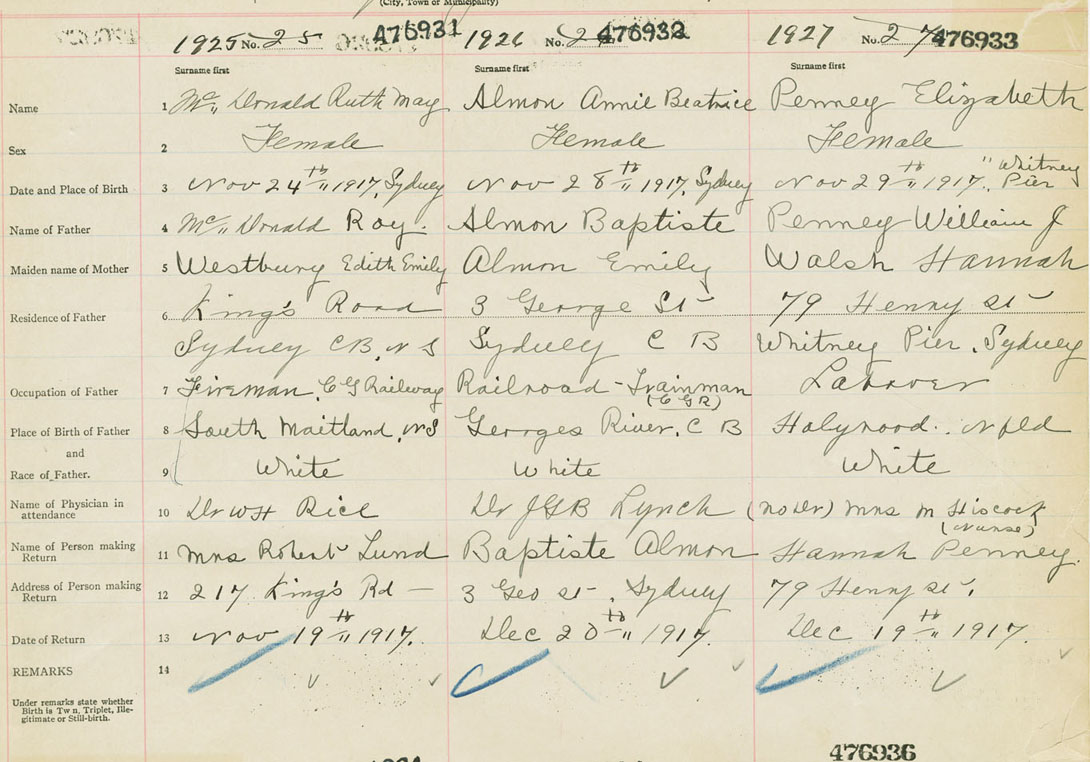 (City, Town or Municipality)
1925 No. 25 476931 1926 No. 476932 1927 No. 27 476933
Surname first Surname first Surname first
Name 1 Mc" Donald Ruth May Almon Annie Beatrice Penney Elizabeth
Sex 2 Female Female Female
Date and Place of Birth 3 Nov 24th" 1917, Sydney Nov 28th" 1917, Sydney Nov 29th" 1917, " Whitney Pier
Name of Father 4 Mc" Donald Roy. Almon Baptiste Penney William J
Maiden name of Mother 5 Westbury Edith Emily Almon Emily Walsh Hannah
Residence of Father 6 King's Road 3 George St 79 Henry St
Sydney CB, NS Sydney C B Whitney Pier, Sydney
Occupation of Father 7 Fireman, C G Railway Railroad - Trainman (C G R) Labrorer
Place of Birth of Father 8 South Maitland, NS Georges River, C B Holyrood. Nfld
and
Race of Father. 9 White White White
Name of Physician in attendance 10 Dr WH Rice Dr JGB Lynch (no Dr) Mrs M Hiscock (Nurse)
Name of Person making Return 11 Mrs Robert Lund Baptiste Almon Hannah Penney.
Address of Person making Return 12 217 King's Rd — 3 Geo St -, Sydney 79 Henry St,
Date of Return 13 Nov 19th" 1917. Dec 20th" 1917. Dec 19th 1917.
REMARKS 14
Under remarks state whether
Birth is Tw n, Triplet, Ille-
gitimate or Still-birth.
476936